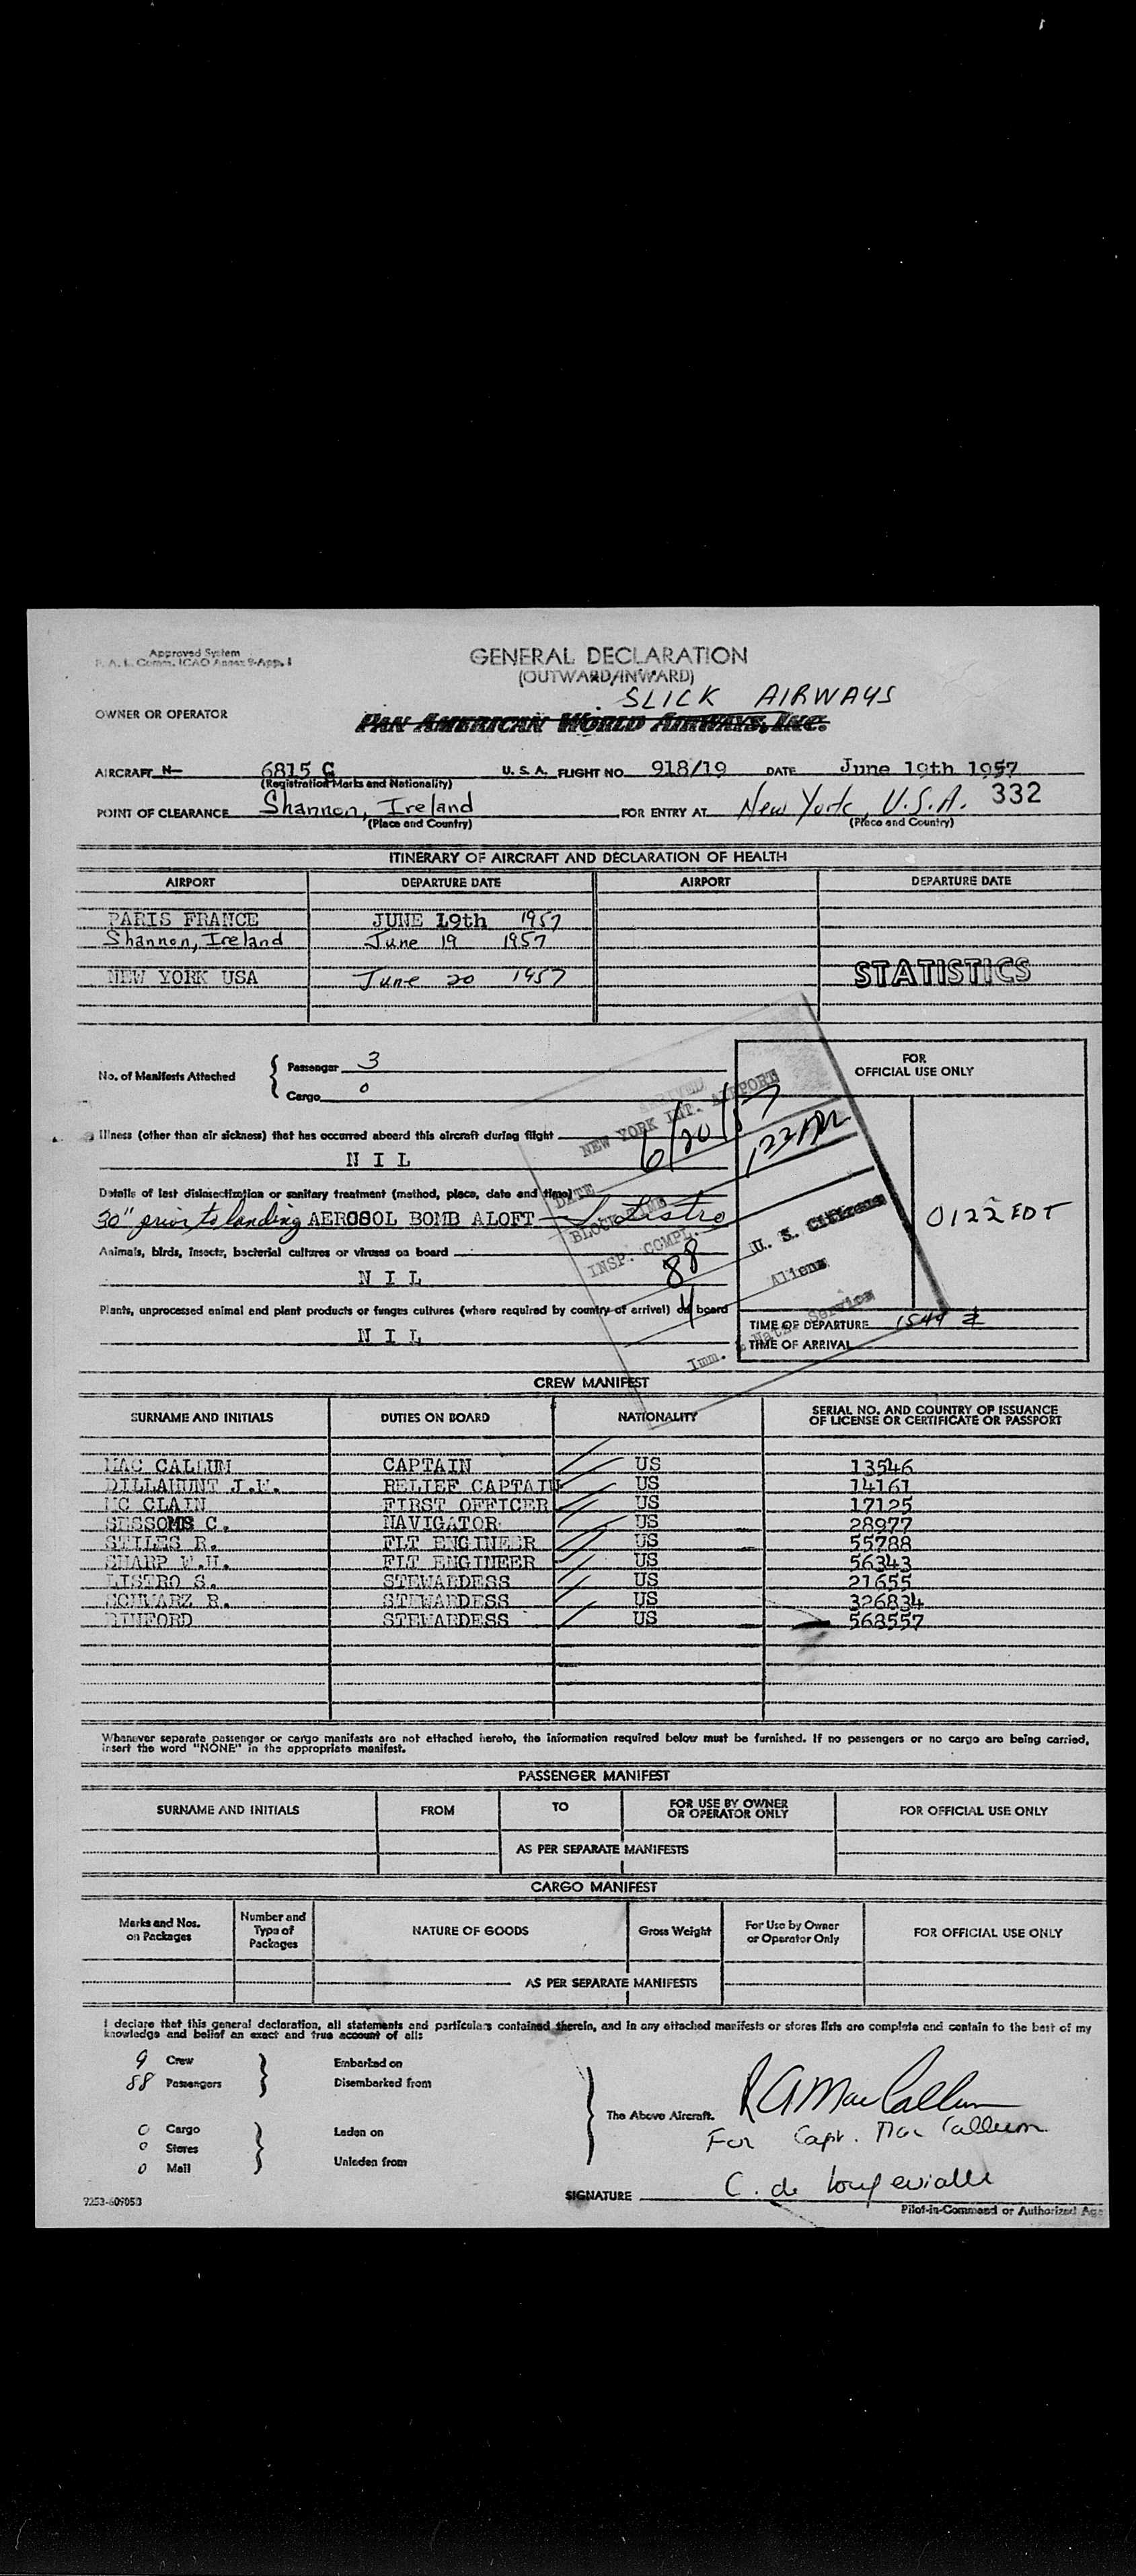 Approved System
F. A. L. Comm. ICAO Annex 9-App. 1
GENERAL DECLARATION
(OUTWARD/INWARD)
SLICK AIRWAYS
OWNER OR OPERATOR PAN AMERICAN WORLD AIRWAYS, INC.
AIRCRAFT N- 6815 C U. S. A. FLIGHT NO. 918/19 DATE June 19th 1957
(Registration Marks and Nationality)
POINT OF CLEARANCE Shannon, Ireland FOR ENTRY AT New York, U.S.A. 332
(Place and Country) (Place and Country)
ITINERARY OF AIRCRAFT AND DECLARATION OF HEALTH
AIRPORT DEPARTURE DATE AIRPORT DEPARTURE DATE
PARIS FRANCE JUNE 19th 1957
Shannon, Ireland June 19 1957
NEW YORK USA June 20 1957
STATISTICS
No. of Manifests Attached { Passenger 3
Cargo 0
FOR
OFFICIAL USE ONLY
NEW YORK INT. AIRPORT
DATE 6/20/57
BLOCK TIME 123 AM
INSP. COMPL.
88 U. S. Citizens
Aliens
Imm. & Natz. Service
Illness (other than air sickness) that has occurred aboard this aircraft during flight
N I L
Details of last disinsectization or sanitary treatment (method, place, date and time)
30" prior to landing AEROSOL BOMB ALOFT S. Listro
0122 EDT
Animals, birds, insects, bacterial cultures or viruses on board
N I L
Plants, unprocessed animal and plant products or funges cultures (where required by country of arrival) on board
N I L
TIME OF DEPARTURE 1544 Z
TIME OF ARRIVAL
CREW MANIFEST
SURNAME AND INITIALS DUTIES ON BOARD NATIONALITY SERIAL NO. AND COUNTRY OF ISSUANCE
OF LICENSE OR CERTIFICATE OR PASSPORT
MAC CALLUM CAPTAIN US 13546
DILLAHUNT J.W. RELIEF CAPTAIN US 14161
MC CLAIN FIRST OFFICER US 17125
SESSOMS C. NAVIGATOR US 28977
STILES R. FLT ENGINEER US 55788
SHARP W.H. FLT ENGINEER US 56343
LISTRO S. STEWARDESS US 21655
SCHWARZ R. STEWARDESS US 326834
BINFORD STEWARDESS US 568557
Whenever separate passenger or cargo manifests are not attached hereto, the information required below must be furnished. If no passengers or no cargo are being carried,
insert the word "NONE" in the appropriate manifest.
PASSENGER MANIFEST
SURNAME AND INITIALS FROM TO FOR USE BY OWNER
OR OPERATOR ONLY FOR OFFICIAL USE ONLY
AS PER SEPARATE MANIFESTS
CARGO MANIFEST
Marks and Nos.
on Packages Number and
Type of
Packages NATURE OF GOODS Gross Weight For Use by Owner
or Operator Only FOR OFFICIAL USE ONLY
AS PER SEPARATE MANIFESTS
I declare that this general declaration, all statements and particulars contained therein, and in any attached manifests or stores lists are complete and contain to the best of my
knowledge and belief an exact and true account of all:
9 Crew Embarked on
88 Passengers Disembarked from
0 Cargo Laden on
0 Stores
0 Mail Unladen from
The Above Aircraft. R A MacCallum
For Capt. Mac Callum
SIGNATURE C. de Longevialle
Pilot-in-Command or Authorized Age
9253-609053